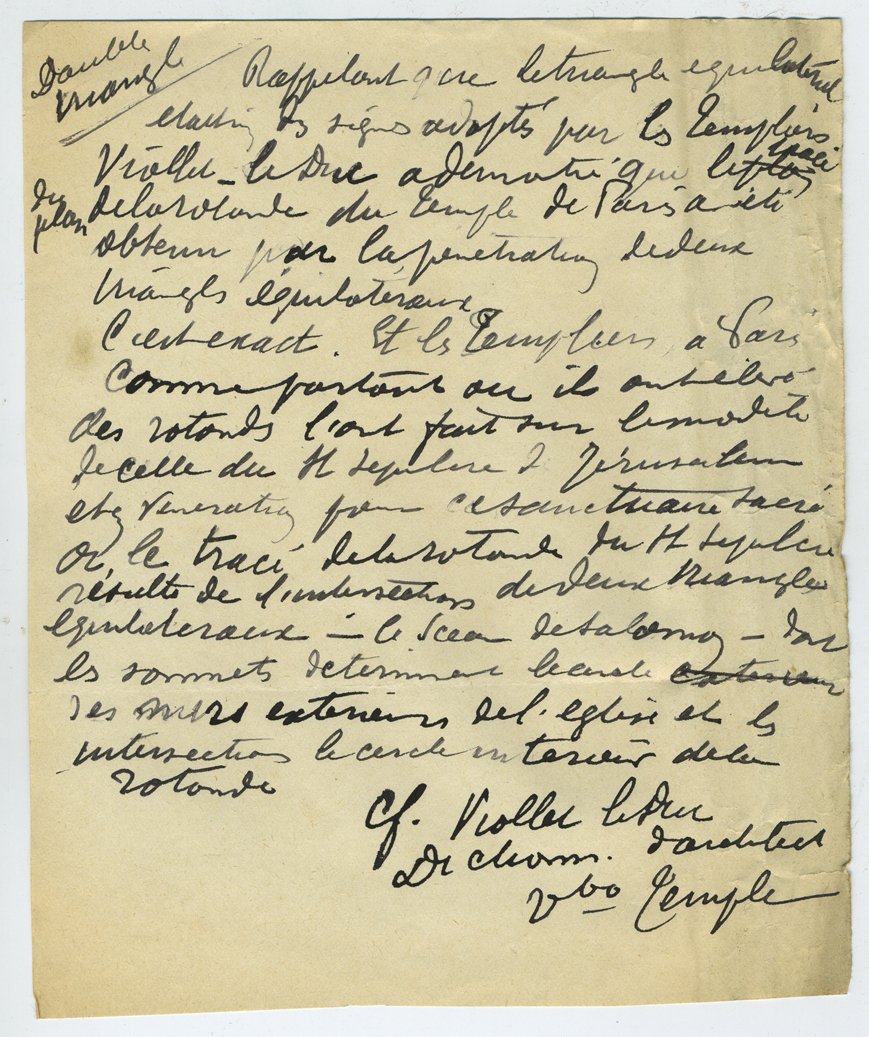 Double
triangle
Rappelant que le triangle equilatéral
etait un des signes adoptés par les Templiers
Viollet-le Duc a demontré que le plan tracé
du plan
de la rotonde du Temple de Paris a été
obtenu par la pénétration de deux
triangles équilatéraux
C'est exact. Et les Templiers, à Paris
comme partout ou ils ont élevé
des rotondes l'ont fait sur le modèle
de celle du St Sepulcre de Jérusalem
et en veneration pour ce sanctuaire sacré
or, le tracé de la rotonde du St Sepulcre
résulte de l'intersection de deux triangles
équilateraux – le Sceau de Salomon – dont
les sommets determinent le cercle exterieur
des murs exterieurs de l'eglise et les
intersections le cercle interieur de la
rotonde
Cf. Viollet le Duc
Dictionn. d'architect
Vbo Temple